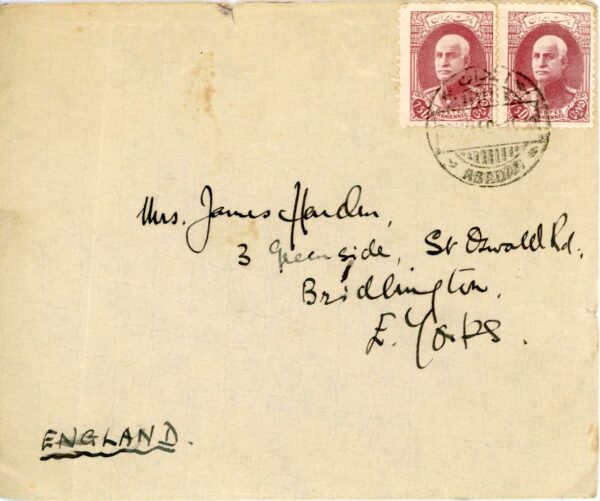 پست ایران
پست ایران
ABADAN
Mrs. James Harden,
3 Greenside, St Oswald Rd.
Bridlington,
E. Yorks.
ENGLAND.